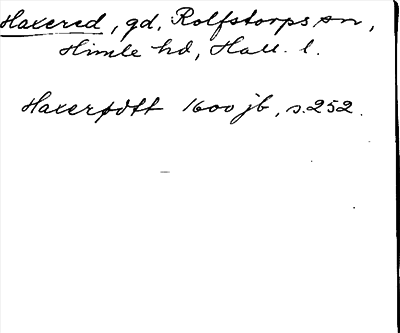 Haxered, gd, Rolfstorps sn,
Himle hd, Hall. l.
Haxerødtt 1600 jb, s. 252.